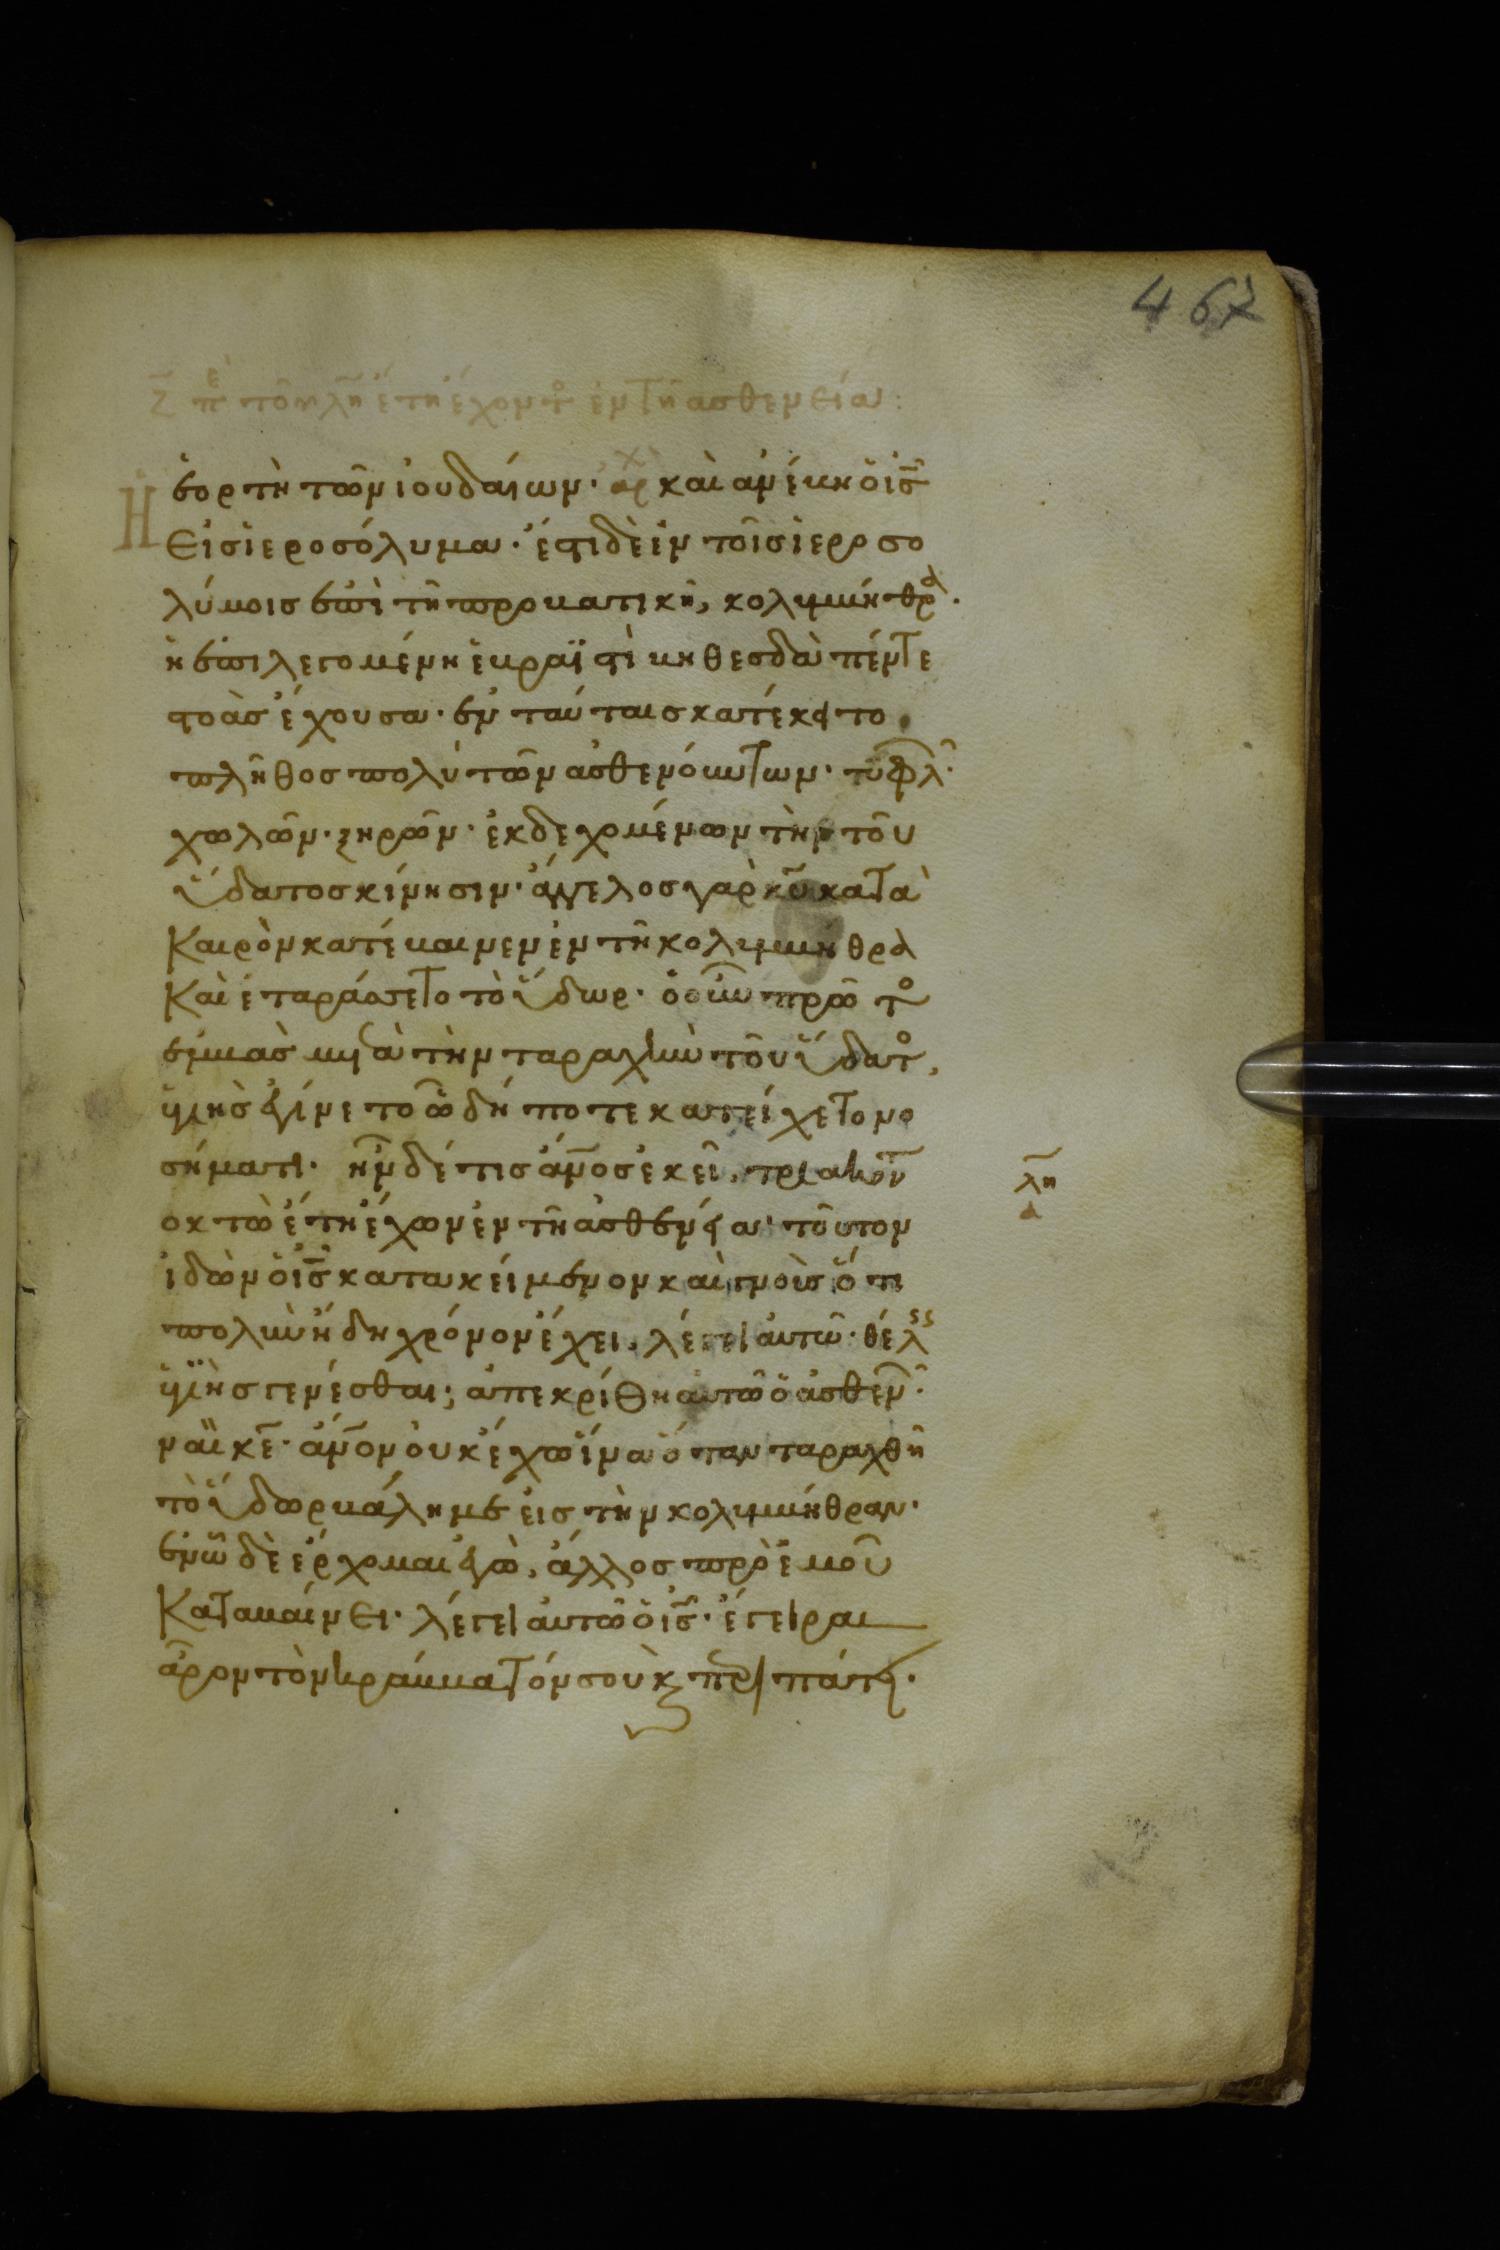 467
ζ̅ πε τοῦ λη̅ ἔτη ἔχοντο ἐν τῆ ἀσθενεία:
Ἡ ἑορτὴ τῶν ἰουδαίων· ἀρχ καὶ ἀνέβη ὁ ις̅
εἰς ἱεροσόλυμα· ἔστι δὲ ἐν τοῖς ἱεροσο
λύμοις ἐπὶ τῆ προβατικῆ, κολυμβήθρα.
ἡ ἐπιλεγομένη ἑβραϊστὶ βηθεσδὰ πέντε
στοὰς ἔχουσα· ἐν ταύταις κατέκειτο
πλῆθος πολὺ τῶν ἀσθενούντων· τυφλ·
χωλῶν· ξηρῶν· ἐκδεχομένων τὴν τοῦ
ὕδατος κίνησιν· ἄγγελος γὰρ κυ̅ κατὰ
καιρὸν κατέβαινεν ἐν τῆ κολυμβήθρα
καὶ ἐταράσσετο τὸ ὕδωρ· ὁ οὖν πρῶτο
ἐμβὰς μετὰ τὴν ταραχὴν τοῦ ὕδατο,
ὑγιὴς ἐγίνετο ὧ δήποτε κατείχετο νο
σήματι· ἦν δέ τις ἄνος̅ ἐκεῖ, τριακοντ
οκτὼ ἔτη ἔχων ἐν τῆ ἀσθενεία· τοῦτον
λη
α
ἰδὼν ὁ ις̅ κατακείμενον καὶ γνοὺς ὅτι
πολὺν ἤδη χρόνον ἔχει, λέγει αὐτῶ· θέλεις
ὑγιὴς γενέσθαι; ἀπεκρίθη αὐτῶ ὁ ἀσθεν·
ναὶ κε̅· ἄνον̅ οὐκ ἔχω ἵνα ὅταν ταραχθῆ
τὸ ὕδωρ βάλη με εἰς τὴν κολυμβήθραν·
ἐν ὧ δὲ ἔρχομαι ἐγὼ, ἄλλος πρὸ ἐμοῦ
καταβαίνει· λέγει αὐτῶ ὁ ις̅· ἔγειραι
ἆρον τὸν κράββατόν σου κ περιπάτει·